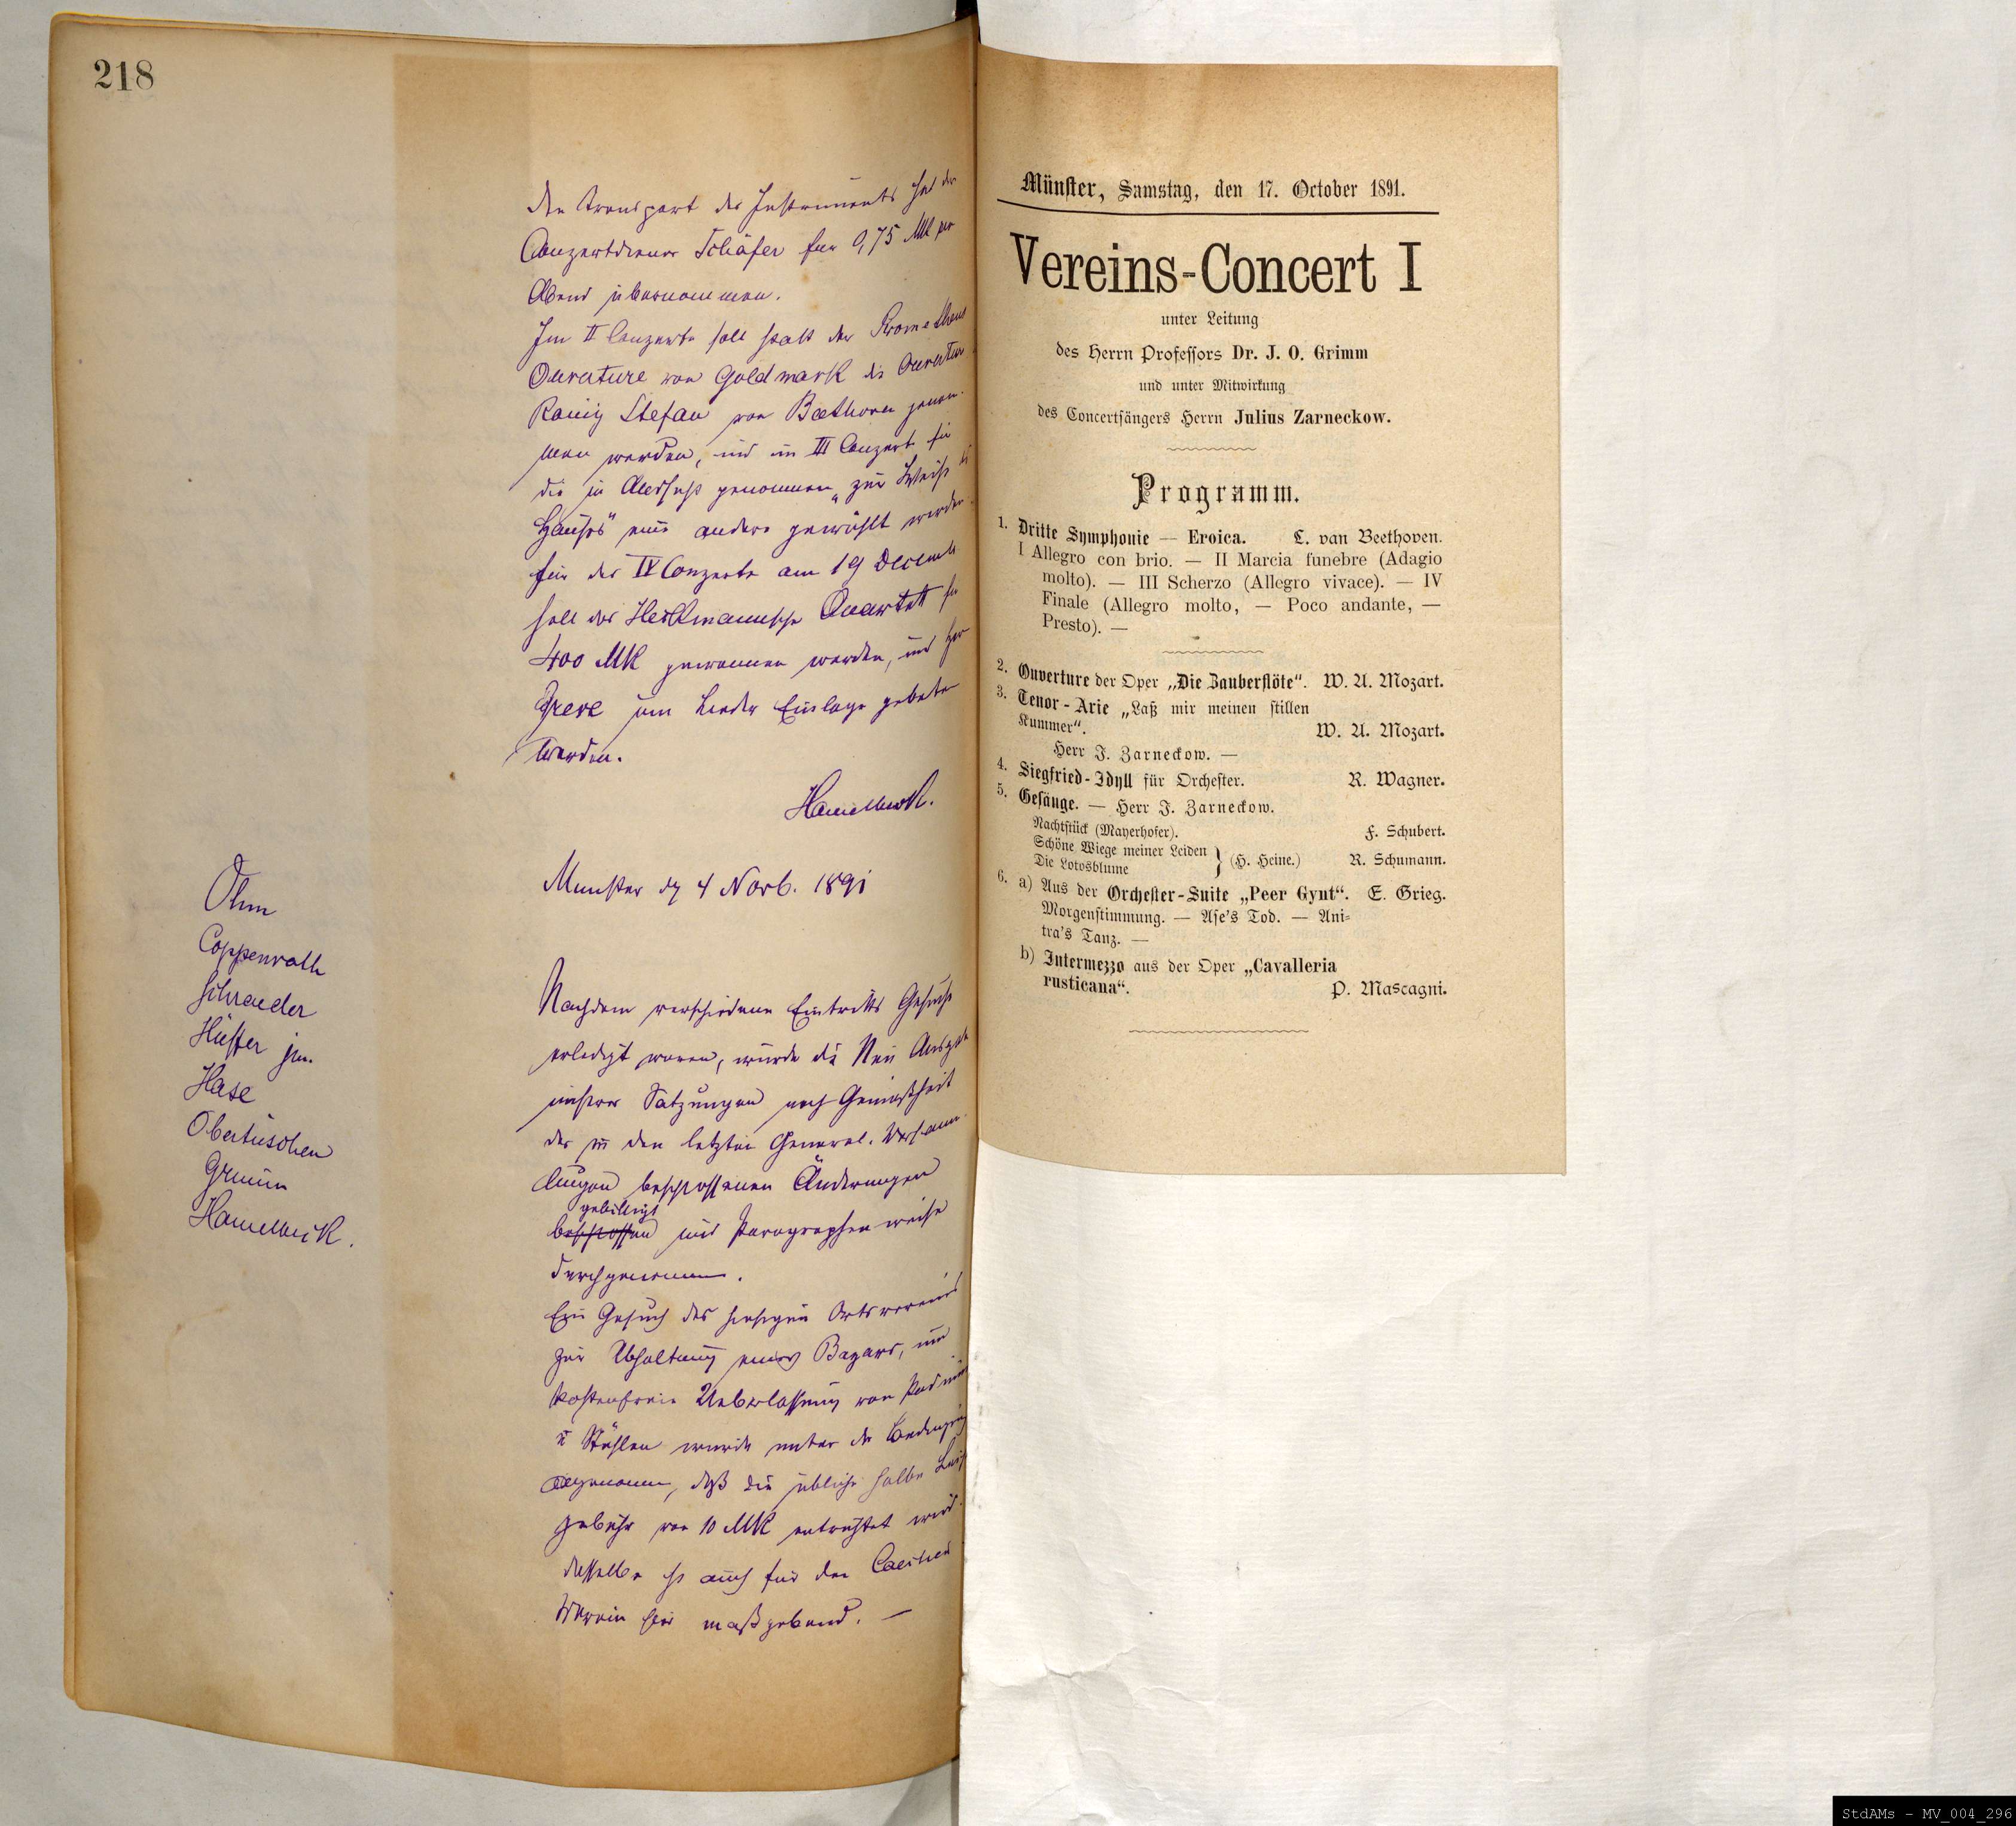 218
den Transport des Instruments hat der
Conzertdiener Schäfer für 0,75 Mk per
Abend übernommen.
Im II Conzerte soll statt der Prometheus
Ouverture von Goldmark die Ouverture
König Stefan von Beethoven genom-
men werden, und im III Conzert für
die in Aussicht genommene „zur Weihe des
Hauses“ eine andere gewählt werden.
für das IV Conzerte am 19 Decemb
soll das Heckmannsche Quartett für
400 MK gewonnen werden, und Herr
Greve um Lieder Einlage gebeten
werden.
Hamelbeck.
Münster dg 4 Novb. 1891
Ohm
Coppenrath
Schraeder
Hüffer jun.
Hase
Obertüschen
Grimm
Hamelbeck.
Nachdem verschiedene Eintritts Gesuche
erledigt waren, wurde die Neu Ausgabe
unserer Satzungen nach Gemäßheit
der in den letzten General. Versamm
lungen beschlossenen Änderungen
gebilligt
beschlossen und Paragraphen weise
durchgenommen.
Ein Gesuch des hiesigen Ortsvereins
zur Abhaltung eines Bazars, um
kostenfreie Ueberlassung von Podium
u Stühlen wurde unter der Bedingung
angenommen, daß die übliche halbe Leih
gebühr von 10 MK entrichtet wird.
dasselbe ist auch für den Caecilien
Verein hier maßgebend. —
Münster, Samstag, den 17. October 1891.
Vereins-Concert I
unter Leitung
des Herrn Professors Dr. J. O. Grimm
und unter Mitwirkung
des Concertsängers Herrn Julius Zarneckow.
Programm.
1. Dritte Symphonie — Eroica. L. van Beethoven.
I Allegro con brio. — II Marcia funebre (Adagio
molto). — III Scherzo (Allegro vivace). — IV
Finale (Allegro molto, — Poco andante, —
Presto). —
2. Ouverture der Oper „Die Zauberflöte“. W. A. Mozart.
3. Tenor-Arie „Laß mir meinen stillen
Kummer“. W. A. Mozart.
Herr J. Zarneckow. —
4. Siegfried-Idyll für Orchester. R. Wagner.
5. Gesänge. — Herr J. Zarneckow.
Nachtstück (Mayerhofer). F. Schubert.
Schöne Wiege meiner Leiden
Die Lotosblume } (H. Heine.) R. Schumann.
6. a) Aus der Orchester-Suite „Peer Gynt“. E. Grieg.
Morgenstimmung. — Ase's Tod. — Ani-
tra's Tanz. —
b) Intermezzo aus der Oper „Cavalleria
rusticana“. P. Mascagni.
StdAMs - MV_004_296